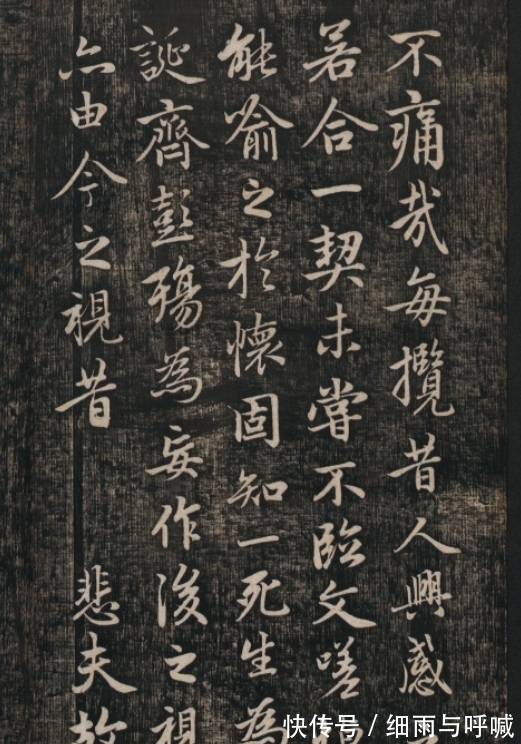 不痛哉每攬昔人興感
若合一契未嘗不臨文嗟
能喻之於懷固知一死生為
誕齊彭殤為妄作後之視
亦由今之視昔 悲夫故
快传号 / 细雨与呼喊